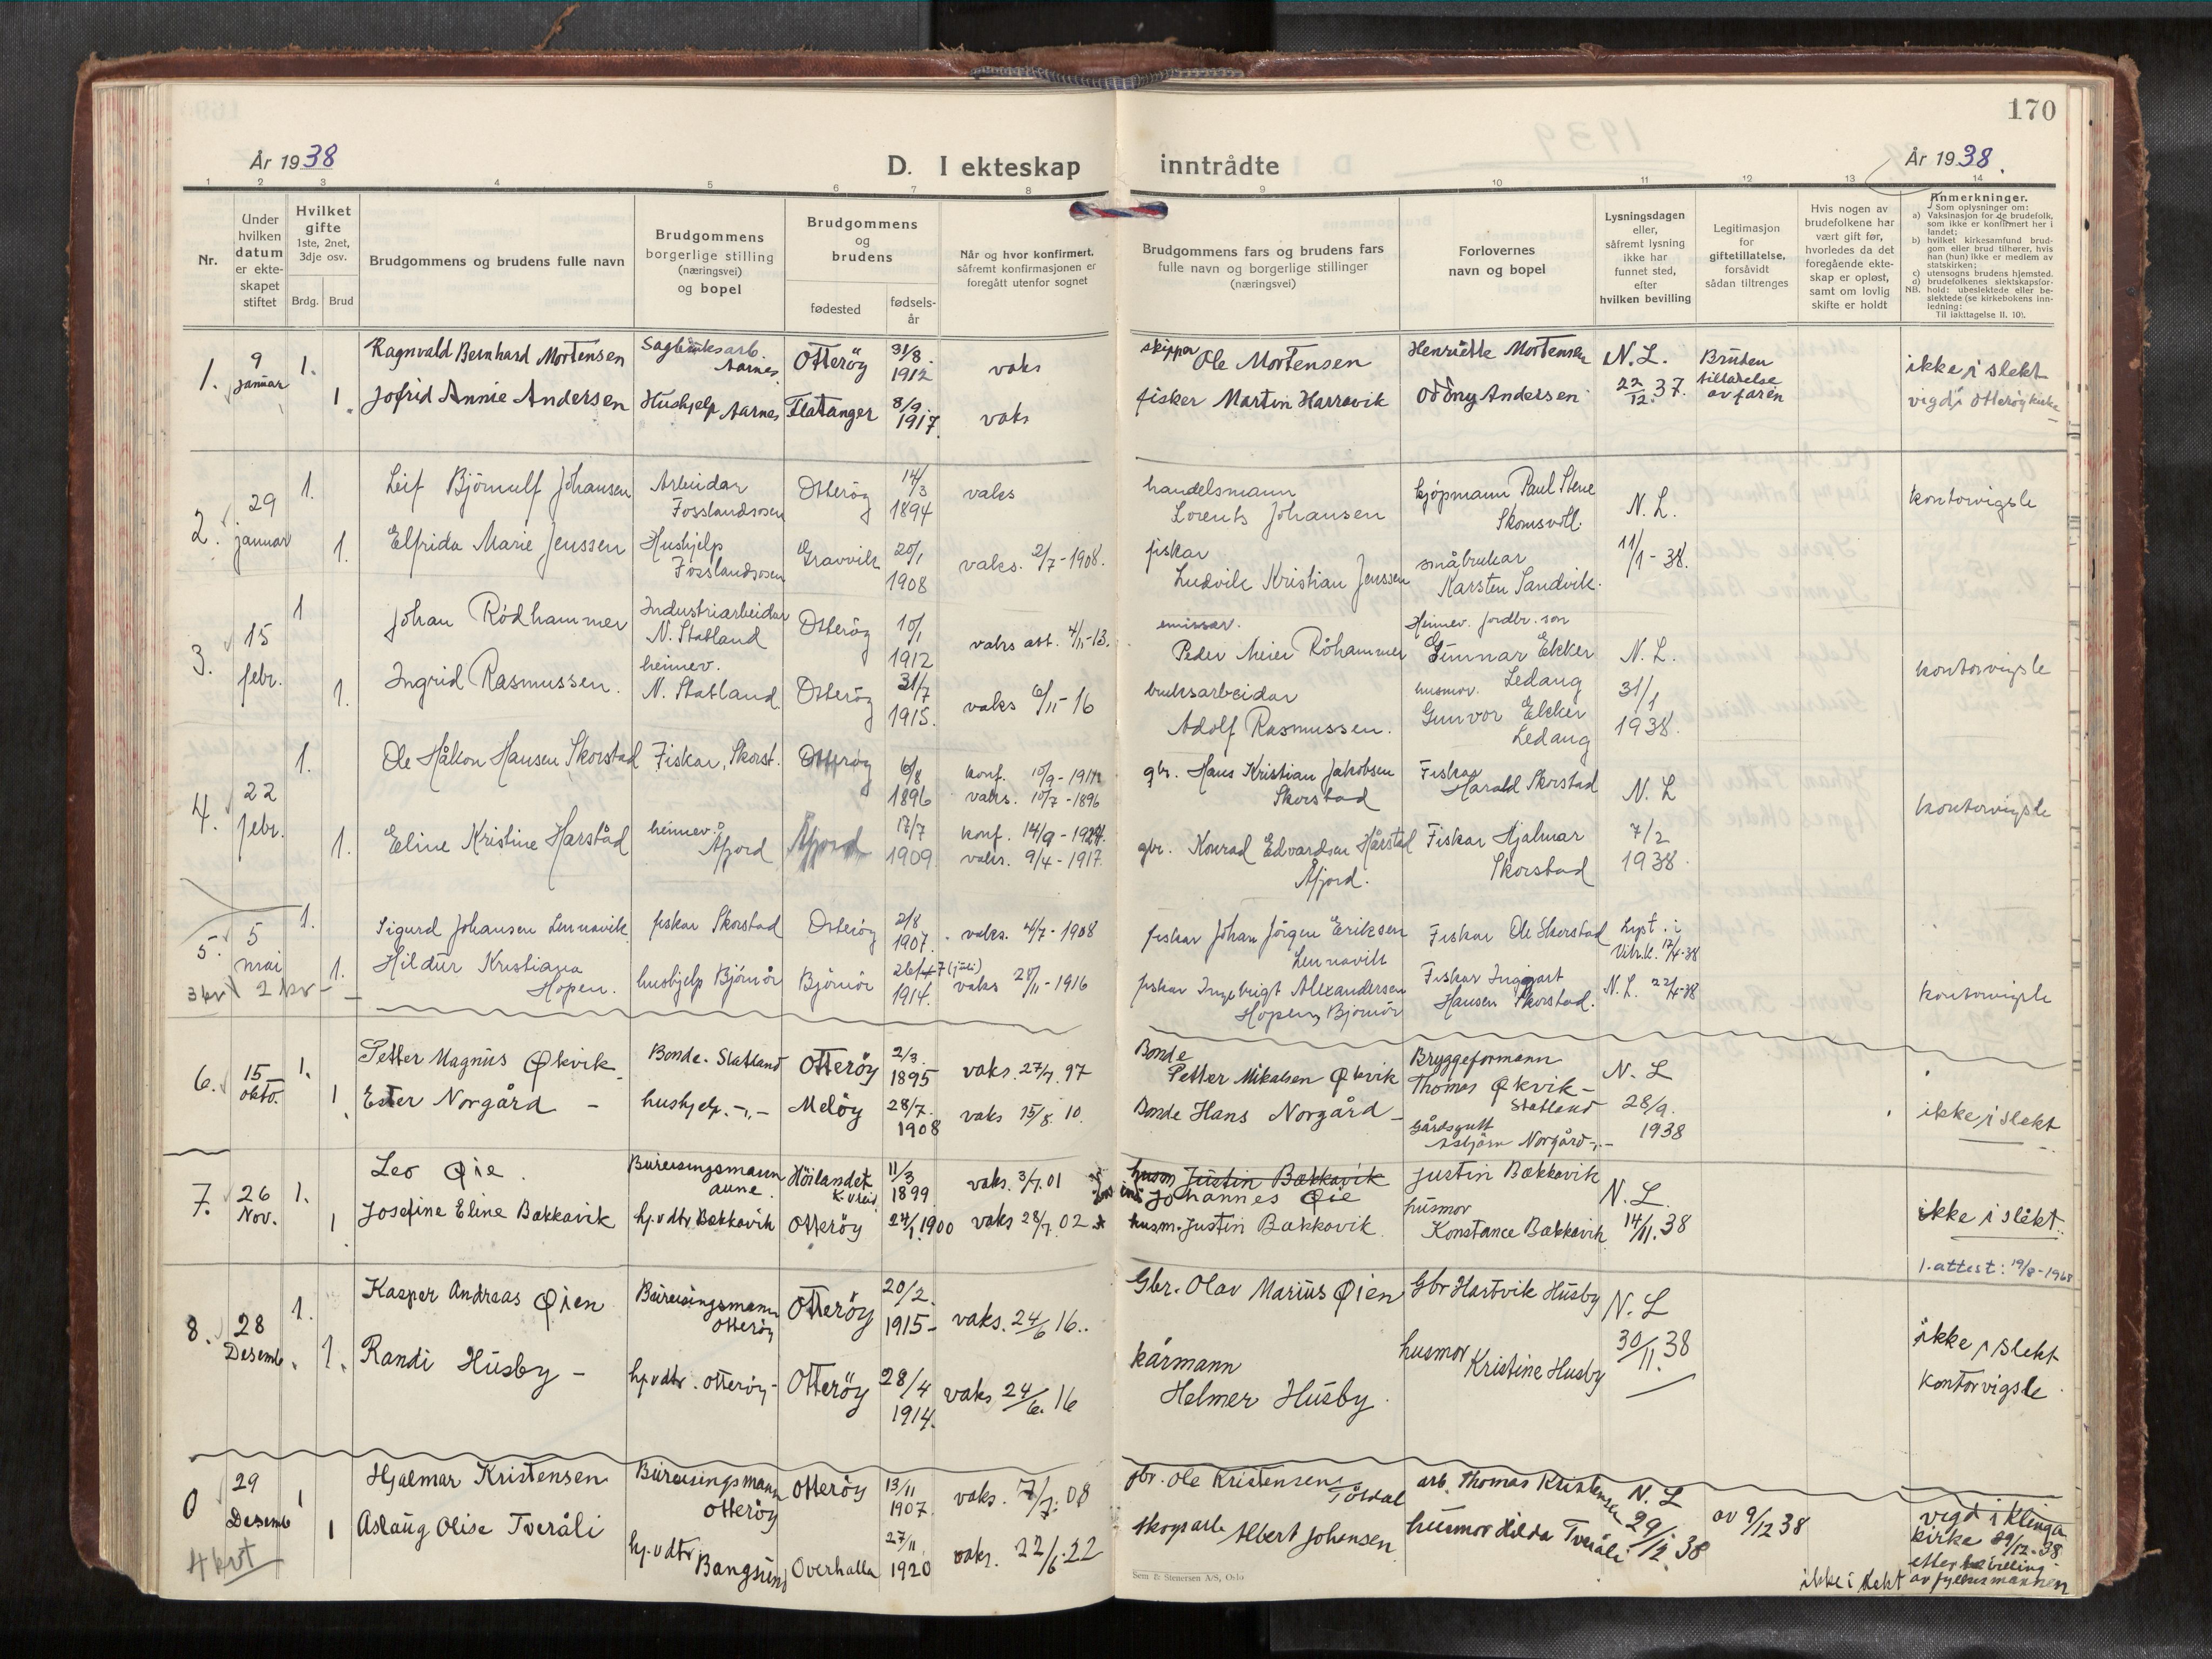 170
År 1938
D. I ekteskap inntrådte
År 1938.
1 2 3 4 5 6 7 8 9 10 11 12 13 14
Nr.
Under hvilken datum er ekteskapet stiftet
Hvilket gifte
1ste, 2net, 3dje osv.
Brdg. Brud
Brudgommens og brudens fulle navn
Brudgommens borgerlige stilling (næringsvei) og bopel
Brudgommens og brudens
fødested
fødsels-år
Når og hvor konfirmert, såfremt konfirmasjonen er foregått utenfor sognet
Brudgommens fars og brudens fars fulle navn og borgerlige stillinger (næringsvei)
Forlovernes navn og bopel
Lysningsdagen eller, såfremt lysning ikke har funnet sted, efter hvilken bevilling
Legitimasjon for giftetillatelse, forsåvidt sådan tiltrenges
Hvis nogen av brudefolkene har vært gift før, hvorledes da det foregående ekteskap er opløst, samt om lovlig skifte er holdt
Anmerkninger.
Som oplysninger om:
a) Vaksinasjon for de brudefolk, som ikke er konfirmert her i landet;
b) hvilket kirkesamfund brudgom eller brud tilhører, hvis han (hun) ikke er medlem av statskirken;
c) utensogns brudens hjemsted.
d) brudefolkenes slektskapsforhold: ubeslektede eller beslektede (se kirkebokens innledning:
NB.
Til iakttagelse II, 10).
1. 9 januar 1. Ragnvald Bernhard Mortensen Sagbruksarb. Aarnes Otterøy 31/8. 1912 vaks skipper Ole Mortensen Henriette Mortensen N.L. 22/12. 37. Bruden tillatelse av faren ikke i slekt
1. Jofrid Annie Andersen Hushjelp Aarnes Flatanger 8/9. 1917. vaks fisker Martin Harravik Oddny Andersen vigd i Otterøy kirke
2. 29 januar 1. Leif Bjørnulf Johansen Arbeidar Fosslandsosen Otterøy 14/3 1894 vaks handelsmann Lorents Johansen kjøpmann Paul Stene Skomsvoll. N.L. 11/1-38. kontorvigsle
1. Elfrida Marie Jenssen Hushjelp Fosslandsosen Gravvik 20/1 1908 vaks. 2/7-1908. fiskar Ludvik Kristian Jenssen småbrukar Karsten Sandvik.
3. 15 febr. 1 Johan Rødhammer Industriarbeidar N. Statland Otterøy 10/1 1912 vaks att. 4/11-13. emissær. Peder Meier Røhammer Heimev. jordbr. son Gunnar Ekker Ledang N.L. 31/1 1938. kontorvigsle
1. Ingrid Rasmussen. heimev. N. Statland Otterøy 31/7 1915. vaks 6/11-16 bruksarbeidar Adolf Rasmussen. husmor. Gunvor Ekker Ledang
4. 22 febr. 1. Ole Håkon Hansen Skorstad Fiskar, Skorst. Otterøy 6/8 1896 konf. 10/9-1911 vaks. 10/7-1896 gbr. Hans Kristian Jakobsen Skorstad Fiskar Harald Skorstad N.L 7/2 1938. kontorvigsle
1. Eline Kristine Harstad heimev. Åfjord Åfjord 17/7 1909 konf. 14/9-1924. vaks. 9/4-1917. gbr. Konrad Edvardsen Hårstad Åfjord. Fiskar Hjalmar Skorstad
5. 5 mai 1. Sigurd Johansen Lennavik fiskar Skorstad Otterøy 2/8 1907. vaks. 4/7-1908 fiskar Johan Jørgen Eriksen Lennavik Fiskar Ole Skorstad Lyst. i Vikr.k. 17/4-38
1. Hildur Kristiana Hopen. hushjelp Bjørnør Bjørnør 26/7 (juli) 1914. vaks 28/11-1916 fiskar Ingebrigt Alexandersen Hopen, Bjørnør Fiskar Inggart Hansen Skorstad. N.L. 22/4-38 kontorvigsle
3 kv 2 kv
6. 15 okto. 1. Petter Magnus Økvik Bonde. Statland Otterøy 2/3. 1895 vaks. 27/7. 97 Bonde Petter Mikalsen Økvik Bryggeformann Thomas Økvik - Statland N.L 28/9. 1938 ikke i slekt
1. Ester Norgård - hushjelp. -,,- Meløy 28/7. 1908 vaks 15/8. 10. Bonde Hans Norgård - Gårdsgutt Asbjørn Norgård -,,-
7. 26 Nov. 1. Leo Øie. Bureisingsmann aune. Høilandet K. Vreid 11/3 1899 vaks. 3/7. 01 husm Justin Bakkavik Johannes Øie Justin Bakkavik N.L. 14/11. 38 ikke i slekt.
1. Josefine Eline Bakkavik hj.v dtr Bakkavik Otterøy 24/1.1900 vaks 28/7. 02 husm. Justin Bakkavik. husmor Konstance Bakkavik
1. attest: 19/8-1968
8. 28 Desemb. 1. Kasper Andreas Øien Bureisingsmann Otterøy Otterøy 20/2. 1915- vaks. 24/6 16.. Gbr. Olav Marius Øien Gbr Hartvik Husby N.L 30/11. 38 ikke i slekt
1. Randi Husby - hj.v dtr. Otterøy- Otterøy 28/4 1914. vaks 24/6. 16 kårmann Helmer Husby. husmor Kristine Husby kontorvigsle
0 29 Desemb 1 Hjalmar Kristensen Bureisingsmann Otterøy Otterøy 13/11 1907. vaks. 7/7. 08 gbr. Ole Kristensen arb. Thomas Kristensen N.L 29/12. 38 av 9/12 38 vigd i Klinga kirke 29/12-38 efter bevilling av fylkesmannen
1 Aslaug Olise Tveråli hj.v dtr Bangsund Overhalla 27/11 1920 vaks. 22/6. 22 skogsarb Albert Johansen husmor Hilda Tveråli ikke i slekt
4 kvt
Sem & Stenersen A/S, Oslo